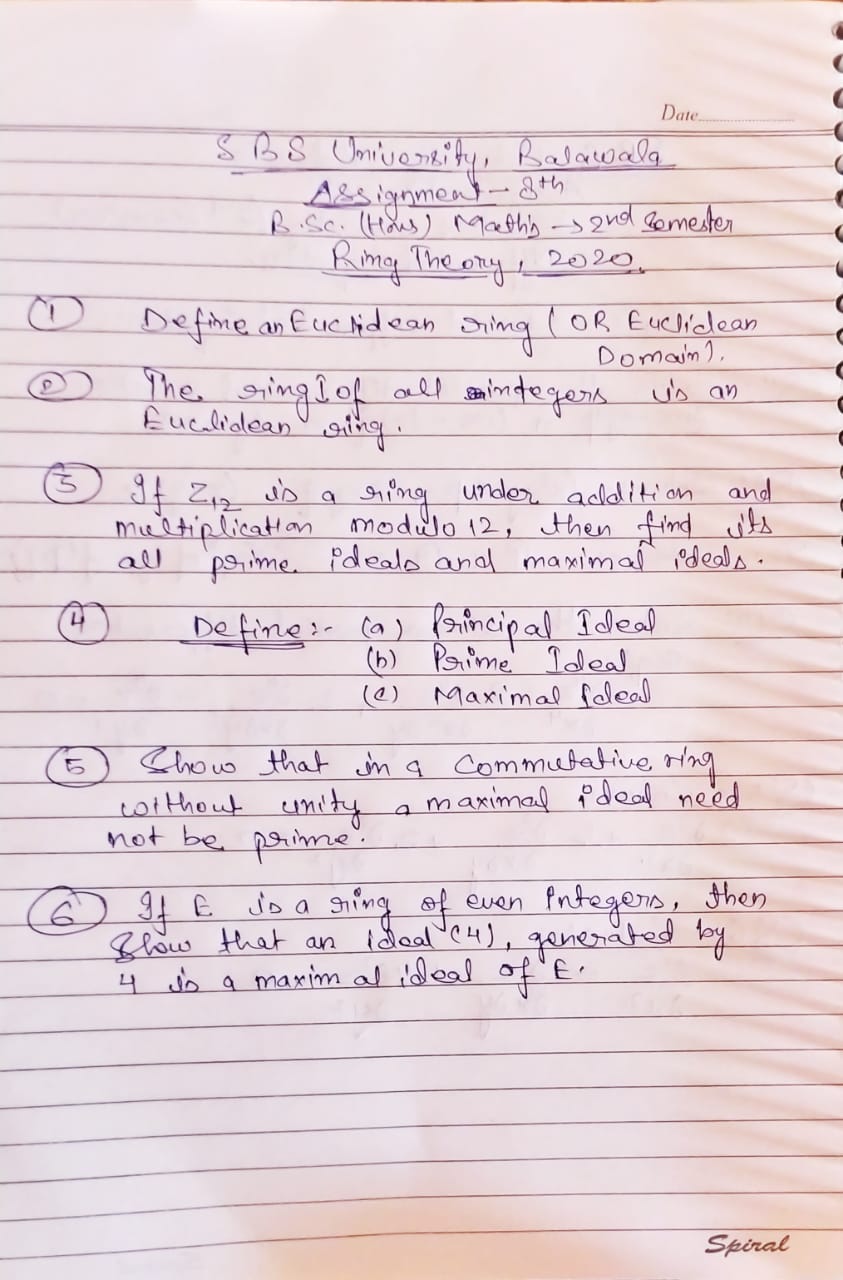 Date
S B S University, Balawala
Assignment - 8th
B.Sc. (Hons) Maths → 2nd Semester
Ring Theory, 2020.
(1) Define an Euclidean ring (OR Euclidean
Domain).
(2) The ring I of all integers is an
Euclidean ring.
(3) If Z12 is a ring under addition and
multiplication modulo 12, then find its
all prime ideals and maximal ideals.
(4) Define:- (a) Principal Ideal
(b) Prime Ideal
(c) Maximal Ideal
(5) Show that in a Commutative ring
without unity a maximal ideal need
not be prime.
(6) If E is a ring of even Integers, then
Show that an ideal (4), generated by
4 is a maximal ideal of E.
Spiral